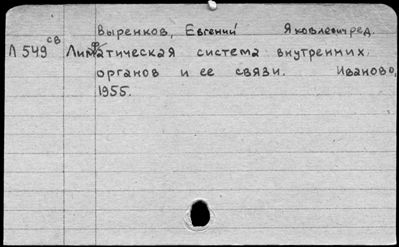 Выренков, Евгений Яковлевич ред.
Л 549 св Лимфатическая система внутренних
органов и ее связи. Иваново,
1955.